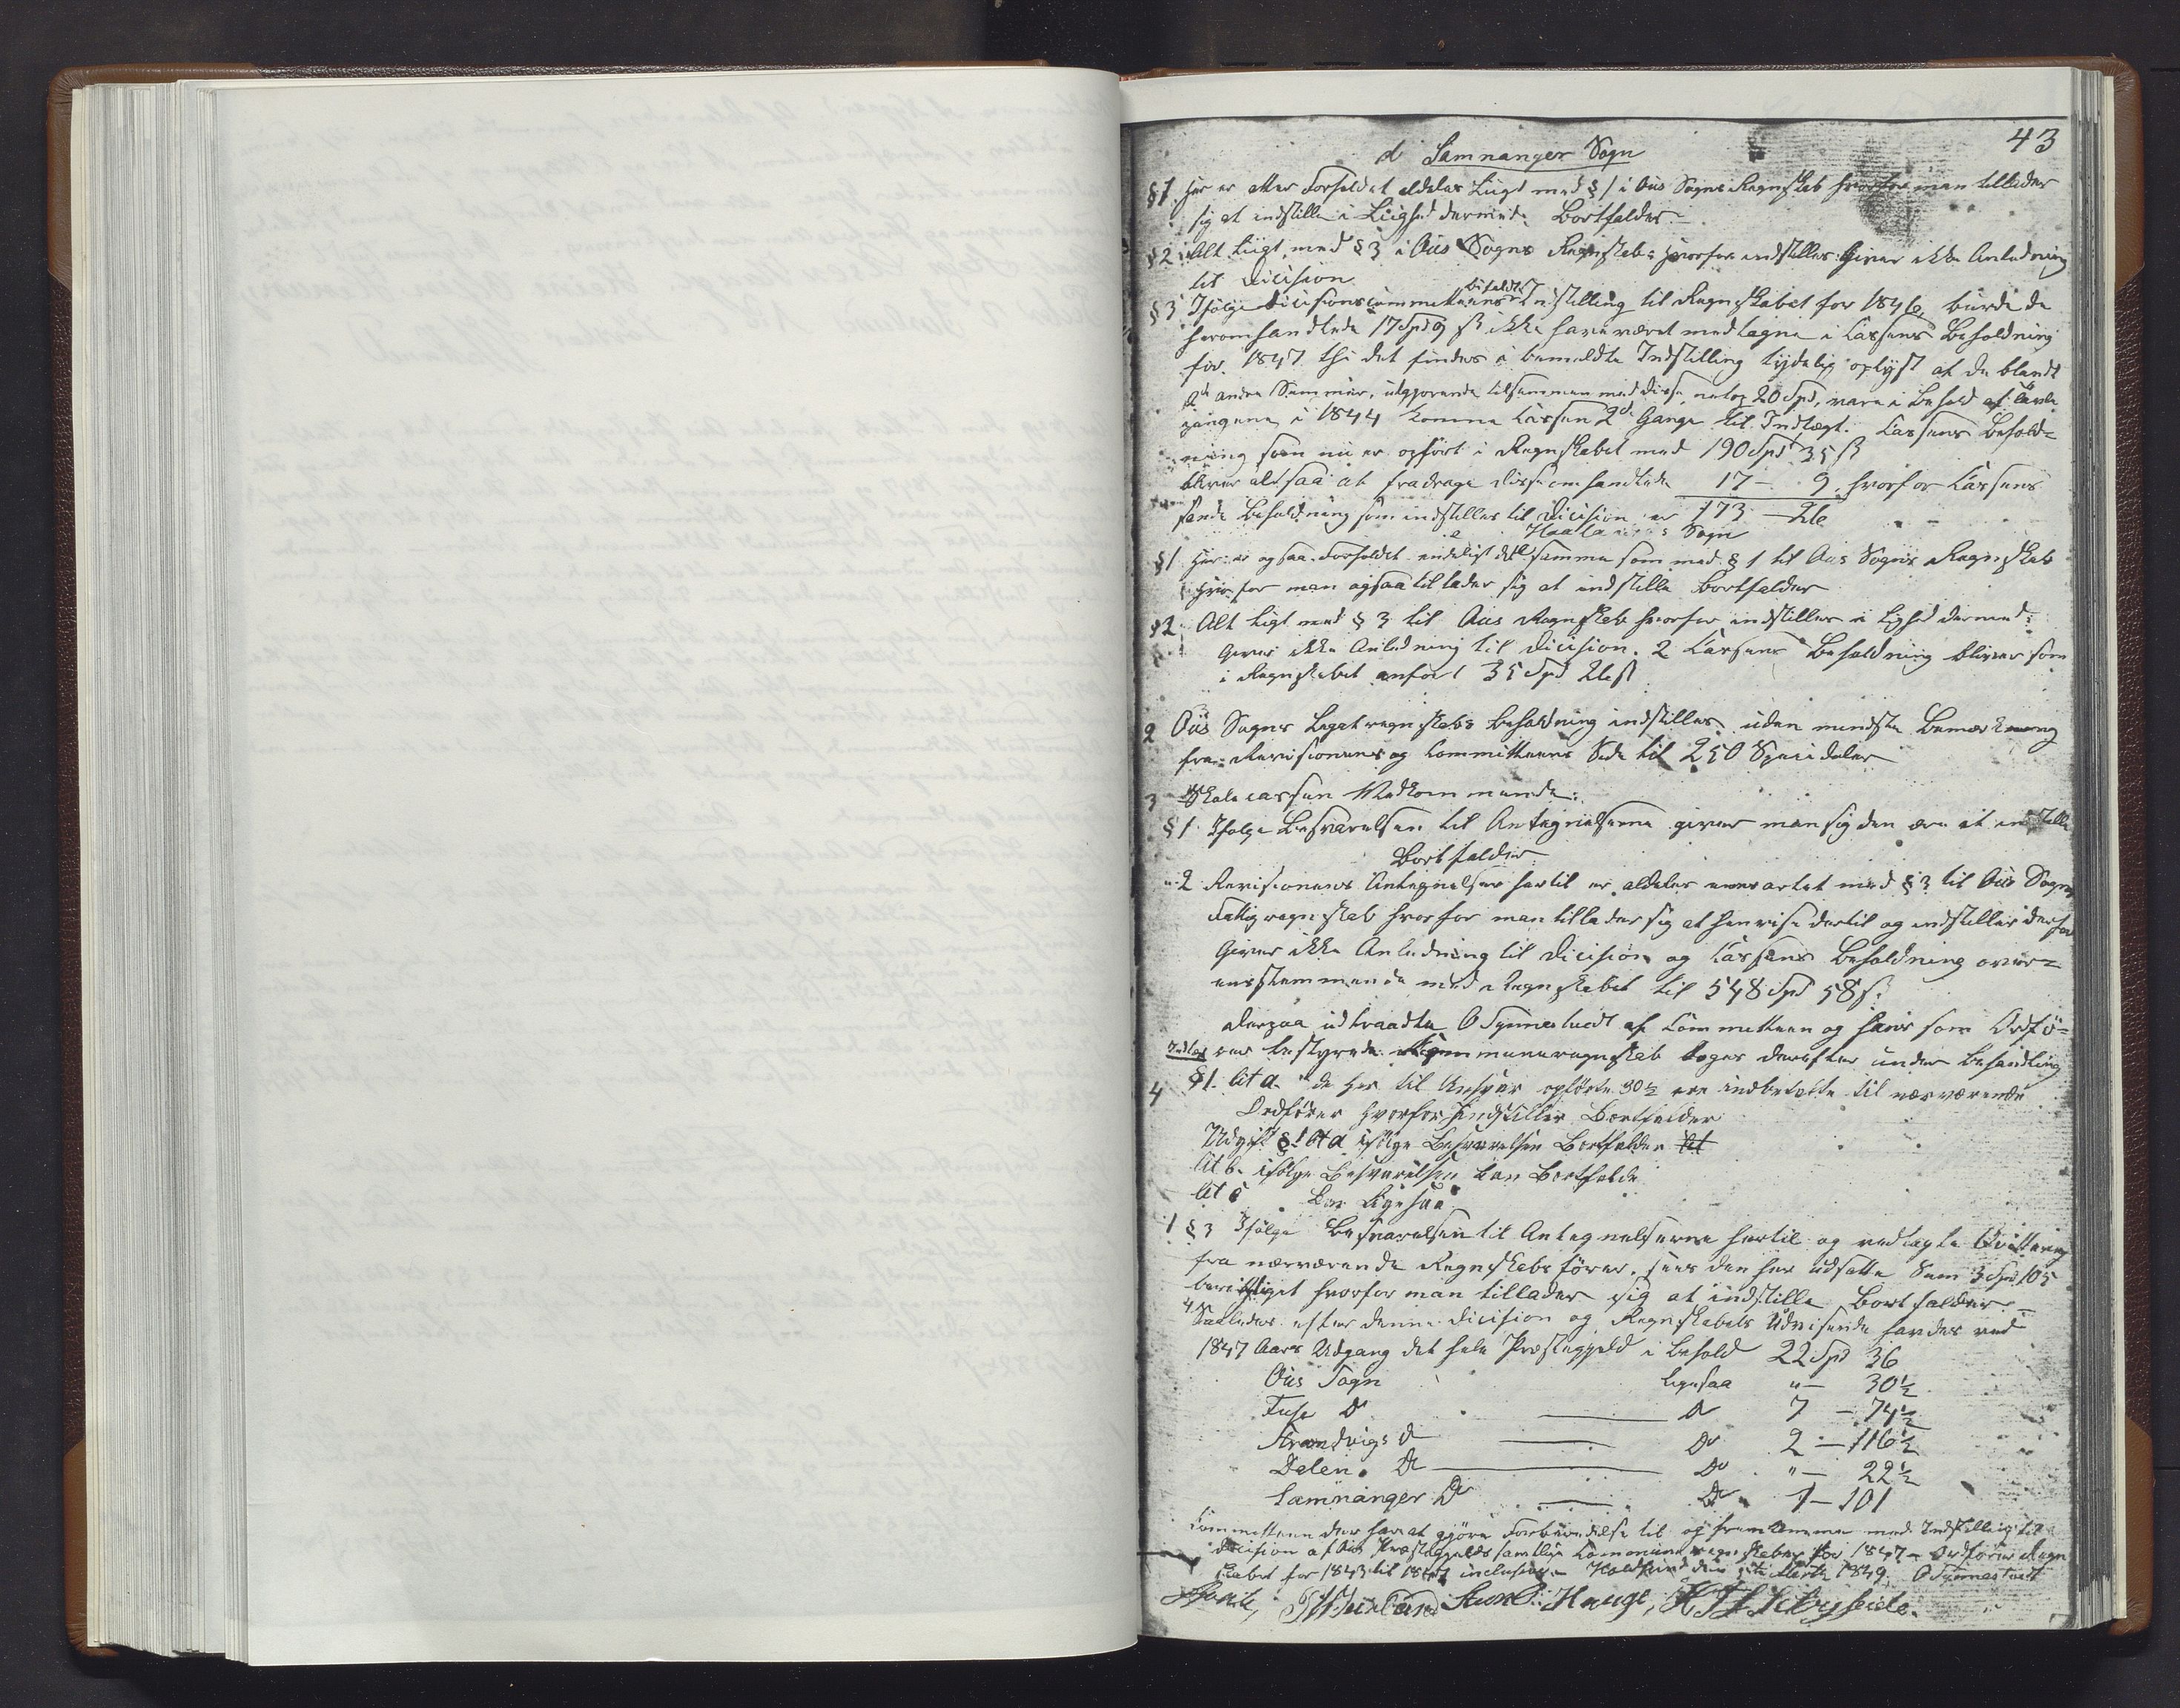 43
d Samnanger Sogn
§1 Her er atter Forholdet aldeles Liigt med § 1 i Ous Sogns Regnskab hvorfor man tillader
sig at indstille i Liighed dermed. Bortfalder
§2 Alt Liigt med § 3 i Ous Sogns Regnskab: hvorfor indstilles: Giver ikke Anledning
til Decision
§3 Ifølge Decisionscommitteens bifaldte Indstilling til Regnskabet for 1846, burde de
heromhandlede 17 Spd 9 ß ikke have været medtagne i Cassens Beholdning
for 1847 thi det findes i bemeldte Indstilling tydelig oplyst at de blandt
andre Summer, udgjørende tilsammen med disse netop 20 Spd, vare i Behold af
gangene i 1844 komne Cassen 2de Gange til Indtægt. Cassens Behold-
ning som nu er opført i Regnskabet med 190 Spd 35 ß
bliver altsaa at fradrage disse omhandlede 17 - 9, hvorfor Cassens
sande Beholdning som indstilles til Decision er 173 - 26
e Haalandals Sogn
§1 Her er ogsaa Forholdet endeligt det samme som med § 1 til Ous Sogns Regnskab
hvorfor man ogsaa tillader sig at indstille Bortfalder
§2 Alt Ligt med § 3 til Ous Regnskab hvorfor indstilles i Lighed dermed:
Giver ikke Anledning til Decision. 2 Cassens Beholdning bliver som
i Regnskabet anført 35 Spd 26 ß
2 Ous Sogns Legatregnskabs Beholdning indstilles uden mindste Bemærkning
fra Revisionens og Committeens Side til 250 Speciedaler
3 Skolecassen Vedkommende:
§1 Ifølge Besvarelsen til Antegnelserne giver man sig den ære at indstille
Bortfalder
" 2 Revisionens Antegnelser hertil er aldeles eensartet med § 3 til Ous Sogns
Fattigregnskab hvorfor man tillader sig at henvise dertil og indstiller derfor
Giver ikke Anledning til Decision og Cassens Beholdning over-
ensstemmende med Regnskabet til 548 Spd 58 ß.
Derpaa udtraadte O Tynnestvedt af Committeen og hans som Ordfø-
rer bestyrede Communeregnskab toges derefter under Behandling
Indtægt
4 §1. lit a. de her til Ansvar opførte 30½ ere indbetalte til nærværende
Ordfører hvorfor Indstilles Bortfalder
Udgift § 1 lit a ifølge Besvarelsen Bortfalder
lit b. ifølge Besvarelsen kan Bortfalde
lit c Bør ligesaa
1 § 3 Ifølge Besvarelsen til Antegnelserne hertil og vedlagte Qvittering
fra nærværende Regnskabsfører, sees den her udsatte Sum 3 Spd 105
berigtiget hvorfor man tillader sig at indstille Bortfalder -
4 Saaledes efter denne Decision og Regnskabets Udvisende havdes ved
1847 Aars Udgang det hele Præstegjeld i Behold 22 Spd 36
Ous Sogn ligesaa " - 30½
Fuse Do Do 7 - 74½
Strandvigs Do Do 2 - 116½
Dalen. Do Do " - 22½
Samnanger Do Do 1 - 101
Committeen der har at gjøre Forberedelse til og fremkomme med Indstilling til
Decision af Ous Præstegjelds samtlige Communeregnskaber for 1847 - Ordfører Regn
skabet for 1843 til 1847 inclusive - Holdhuus den Marts 1849. O Tynnestvedt
Hauge,